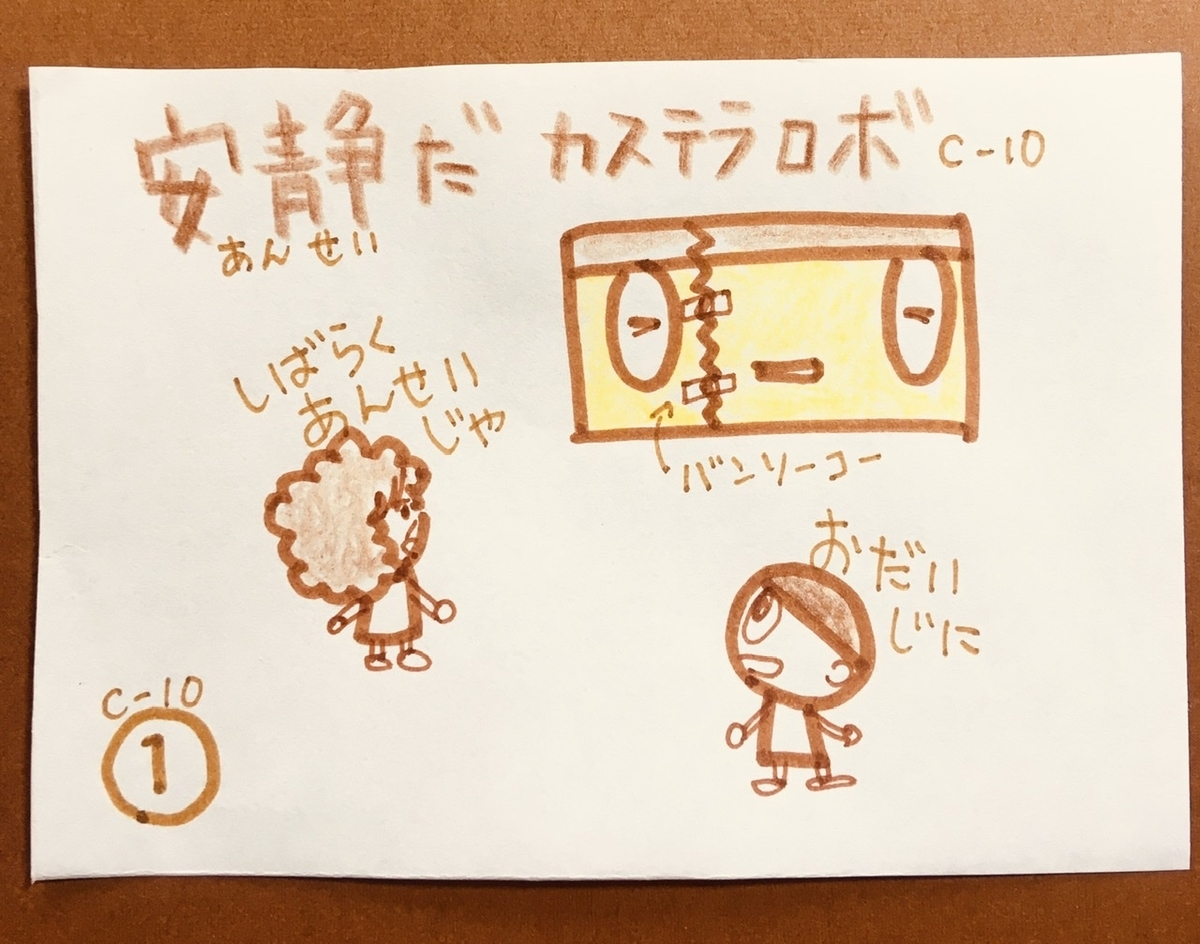 安静だ カステラロボ C-10
あんせい
しばらく
あんせい
じゃ
バンソーコー
おだい
じに
C-10
1